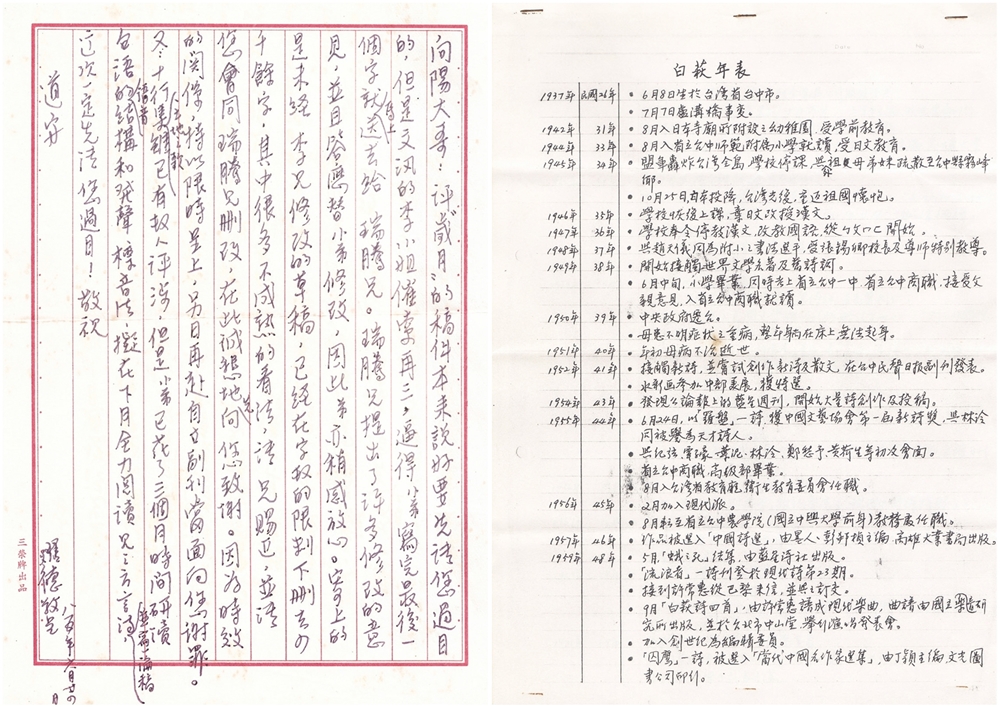 向陽大哥：評《歲月》的稿件本來說好要先請您過目
的，但是文訊的李小姐催索再三，逼得小弟寫完最後一
個字就馬上送去給瑞騰兄。瑞騰兄提出了許多修改的意
見，並且答應替小弟修改，因此小弟亦稍感放心。寄上的
是未經李兄修改的草稿，已經在字數的限制下刪去
千餘字，其中很多不成熟的看法，請兄賜正，並請
您會同瑞騰兄刪改，在此誠懇地先向您致謝。因為時效
的關係，特以限時呈上，另日再赴自立副刊當面向您謝罪。
又，《十行集》、《土地的歌》雖已有故人評涉，但是小弟已花了三個月時間研讀
台語的結構和發聲、語音標音法，擬在下月全力閱讀兄之方言詩集寄論稿
這次一定先請您過目！敬祝
道安
德 敬
八五年六月
三榮牌出品
白萩年表
1937年 民國26年 • 6月8日生於台灣省台中市。
• 7月7日盧溝橋事變。
1942年 31年 • 8月入日本寺廟所附設之幼稚園，受學前教育。
1944年 33年 • 8月入省立台中師範附屬小學就讀，受日文教育。
1945年 34年 • 盟軍轟炸台灣全島，學校停課，與祖父母弟妹疏散至台中縣霧峰
鄉。
• 10月25日日本投降，台灣光復，重返祖國懷抱。
1946年 35年 • 學校恢復上課，棄日文改授漢文。
1947年 36年 • 學校奉令停教漢文，改教國語，從ㄅㄆㄇㄈ開始。
1948年 37年 • 與趙天儀同為附小之書法選手，受張錫卿校長及導師特別教導。
1949年 38年 • 開始接觸世界文學名著及舊詩詞。
• 6月中旬，小學畢業，同時考上省立台中一中、省立台中商職，接受父
親意見，入省立台中商職就讀。
1950年 39年 • 中央政府遷台。
• 母患不明症狀之重病，整年躺在床上無法起身。
1951年 40年 • 年初母病不治逝世。
1952年 41年 • 接觸新詩，並嘗試創作新詩及散文，在台中民聲日報副刊發表。
• 水彩畫參加中部美展，獲特選。
1954年 43年 • 發現公論報上的藍星週刊，開始大量詩創作及投稿。
1955年 44年 • 6月24日，以「羅盤」一詩，獲中國文藝協會第一屆新詩獎，與林泠
同被譽為天才詩人。
• 與紀弦、覃子豪、葉泥、林泠、鄭愁予、黃荷生等初次會面。
• 省立台中商職，高級部畢業。
• 8月入台灣省教育廳，衛生教育委員會任職。
1956年 45年 • 2月加入現代派。
• 8月轉至省立台中農學院（國立中興大學前身）教務處任職。
1957年 46年 • 作品被選入「中國詩選」，由墨人、彭邦楨主編，高雄大業書局出版。
1959年 48年 • 5月「蛾之死」結集，由藍星詩社出版。
• 「流浪者」一詩刊登於現代詩第23期。
• 接到許常惠從巴黎來信，並與之訂交。
• 9月「白萩詩四首」，由許常惠譜成現代樂曲，曲譜由國立音樂研
究所出版，並於台北市中山堂，舉行演唱發表會。
• 加入創世紀為編輯委員。
• 「囚鷹」一詩，被選入「當代中國名作家選集」，由丁穎主編，文光圖
書公司印行。